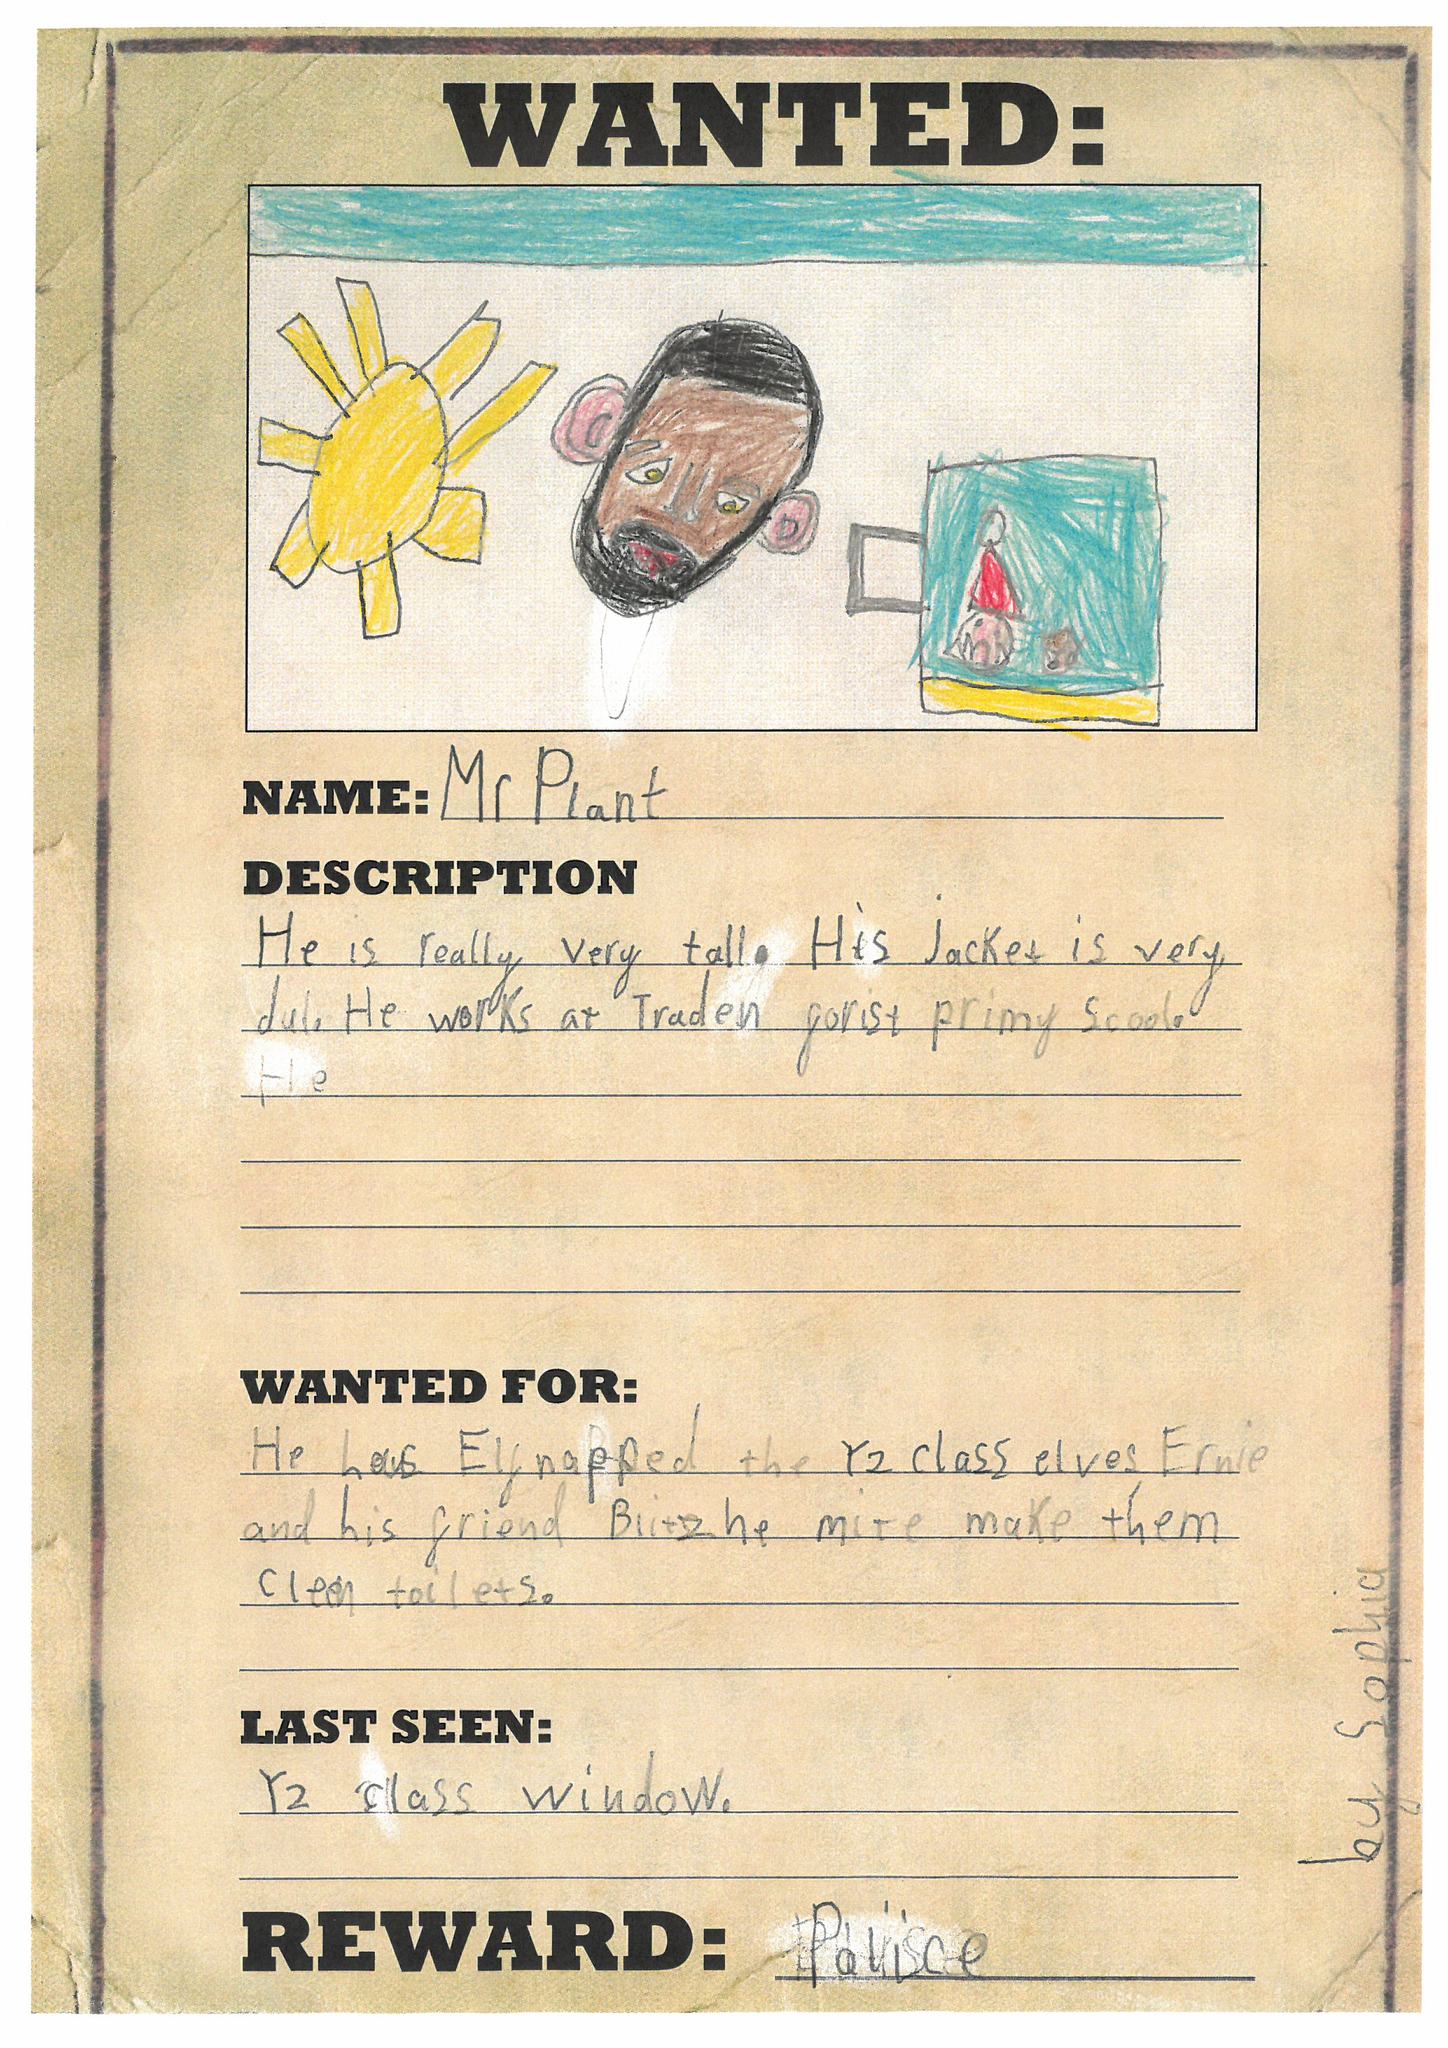 WANTED:
NAME: Mr Plant
DESCRIPTION
He is really very tall. His jacket is very
dul. He works at Traden gorist primy scool.
He
WANTED FOR:
He has Elfnapped the Y2 class elves Ernie
and his friend Blitz he mite make them
Cleen toilets.
LAST SEEN:
Y2 class window.
REWARD:
by Sophia